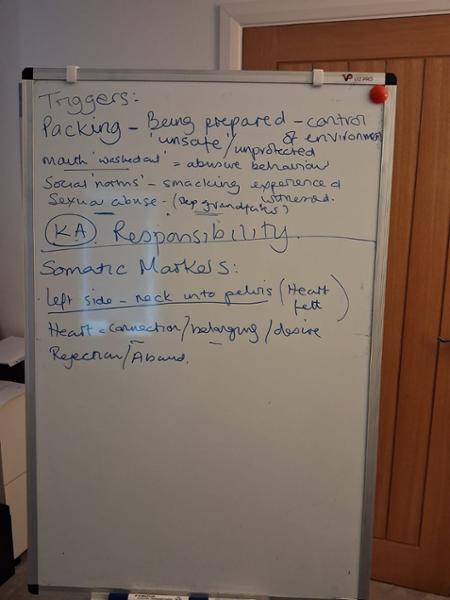 VP UZ PRO
Triggers:
Packing - Being prepared - control
'unsafe'/unprotected of environment
mouth 'washed out' = abusive behaviour
Social 'norms' - smacking experienced
witnessed.
Sexual abuse - (step grandfather)
KA Responsibility
Somatic Markers:
left side - neck into pelvis (Heart
felt)
Heart = connection/belonging/desire
Rejection/Aband.